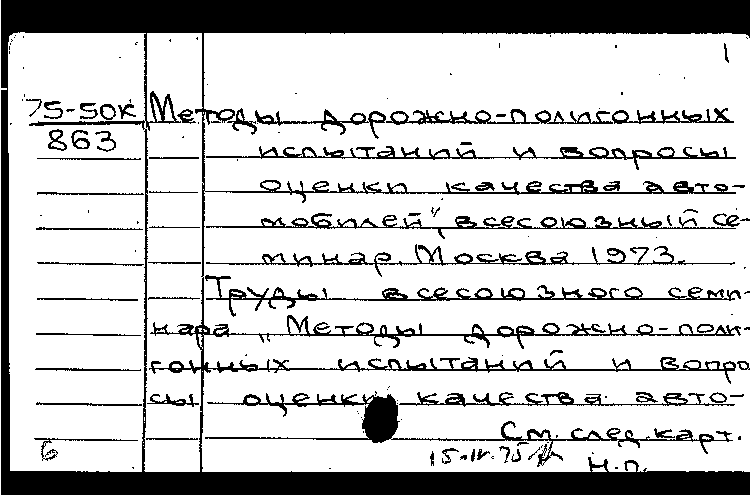 1
75-50К Методы дорожно-полигонных
863
испытаний и вопросы
оценки качества авто-
мобилей", всесоюзный се-
минар. Москва 1973.
Труды всесоюзного семи-
нара „Методы дорожно-поли-
гонных испытаний и вопро
сы оценки качества авто-
См. след. карт.
6 15-IV-75
н.п.